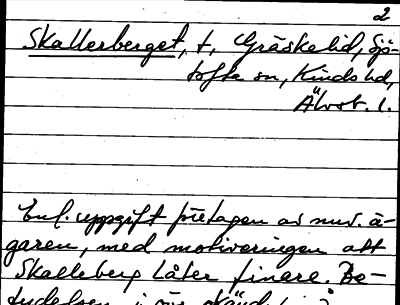 2
Skallerberget, t, Gräskelid, Sjö-
tofta sn, Kinds hd,
Älvsb. l.
Enl. uppgift företagen av nuv. ä-
garen, med motiveringen att
Skalleberg låter finare. Be-
tydelsen